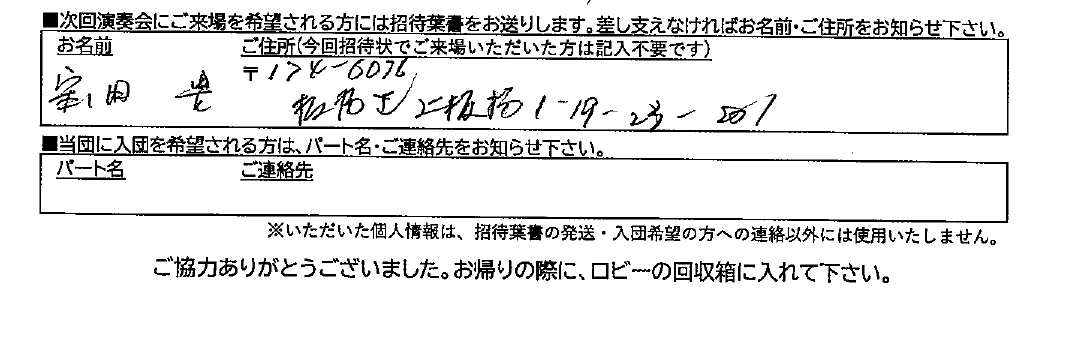 ■次回演奏会にご来場を希望される方には招待葉書をお送りします。差し支えなければお名前・ご住所をお知らせ下さい。
お名前 ご住所(今回招待状でご来場いただいた方は記入不要です)
〒174-6076
田 板橋区 板橋1-19-
■当団に入団を希望される方は、パート名・ご連絡先をお知らせ下さい。
パート名 ご連絡先
※いただいた個人情報は、招待葉書の発送・入団希望の方への連絡以外には使用いたしません。
ご協力ありがとうございました。お帰りの際に、ロビーの回収箱に入れて下さい。